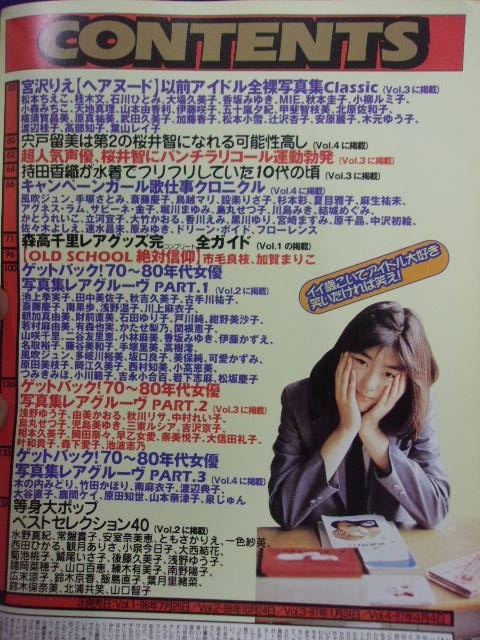 CONTENTS
宮沢りえ【ヘアヌード】以前アイドル全裸写真集Classic (Vol.3に掲載)
松本ちえこ、桂木文、石川ひとみ、大場久美子、香坂みゆき、MIE、秋本圭子、小柳ルミ子、
小森みちこ、天地真理、山本由香利、伊藤咲子、五十嵐夕紀、甲斐智枝美、北原佐和子、
横須賀昌美、原真祐美、武田久美子、加藤香子、松本小雪、辻沢杏子、安原麗子、木元ゆう子、
渡辺桂子、高部知子、葉山レイ子
60
宍戸留美は第2の桜井智になれる可能性高し (Vol.4に掲載)
62
超人気声優、桜井智にパンチラリコール運動勃発 (Vol.3に掲載)
64
持田香織が水着でフリフリしていた10代の頃 (Vol.3に掲載)
66
キャンペーンガール歌仕事クロニクル (Vol.4に掲載)
風吹ジュン、手塚さとみ、斎藤慶子、鳥越マリ、設楽りさ子、杉本彩、夏目雅子、麻生祐未、
アグネス・ラム、サビーネ・金子、堀川まゆみ、烏丸せつ子、川島みき、結城めぐみ、
かとうれいこ、立河宜子、大竹かおる、香川えみ、黒川ゆり、宮崎ますみ、原千晶、中沢初絵
佐々木よしえ、速水昌未、原みゆき、水口ドーン、フローレンス
71
森高千里レアグッズ完全ガイド (Vol.1の掲載)
コンプリート
96
【OLD SCHOOL 絶対信仰】市毛良枝、加賀まりこ
100
ゲットバック!70〜80年代女優
写真集レアグルーヴ PART.1 (Vol.2に掲載)
池上季実子、田中美佐子、秋吉久美子、古手川祐子、
斎藤慶子、南果歩、浅野温子、川上麻衣子、
朝加真由美、岬貫美、石田ゆり子、戸川純、紺野美沙子、
若村麻由美、有森也実、かたせ梨乃、関根恵子、
山咲千里、二谷友里恵、小林麻美、香坂みゆき、伊藤かずえ、
名取裕子、藤谷美和子、手塚里美、高樹澪、
風吹ジュン、多岐川裕美、坂口良子、美保純、可愛かずみ、
原田美枝子、岡江久美子、西村知美、小高恵美、
つみきみほ、小川範子、吉永小百合、岩下志麻、松坂慶子
126
ゲットバック!70〜80年代女優
写真集レアグルーヴ PART.2 (Vol.3に掲載)
浅野ゆう子、由美かおる、秋川リサ、中村れい子、
烏丸せつ子、児島美ゆき、三東ルシア、吉沢京子、
相本久美子、岡田奈々、早乙女愛、奈美悦子、大信田礼子、
叶和貴子、森下愛子、池波志乃
ゲットバック!70〜80年代女優
写真集レアグルーヴ PART.3 (Vol.4に掲載)
木の内みどり、竹田かほり、南麻衣子、渡辺典子、
大谷直子、鹿間ケイ、原田知世、山本奈津子、泉じゅん
等身大ポップ
ベストセレクション40 (Vol.2に掲載)
水野真紀、常盤貴子、安室奈美恵、ともさかりえ、一色紗英、
西田ひかる、観月ありさ、小泉今日子、大西結花、
菊池桃子、鷲尾いさ子、後藤久美子、浅野ゆう子、
諸岡菜穂子、山口百恵、綾木有美子、南野陽子、
広末涼子、鈴木京香、飯島直子、葉月里緒菜、
鈴木保奈美、北浦共笑、山口智子
イイ歳こいてアイドル大好き
笑いたければ笑え!